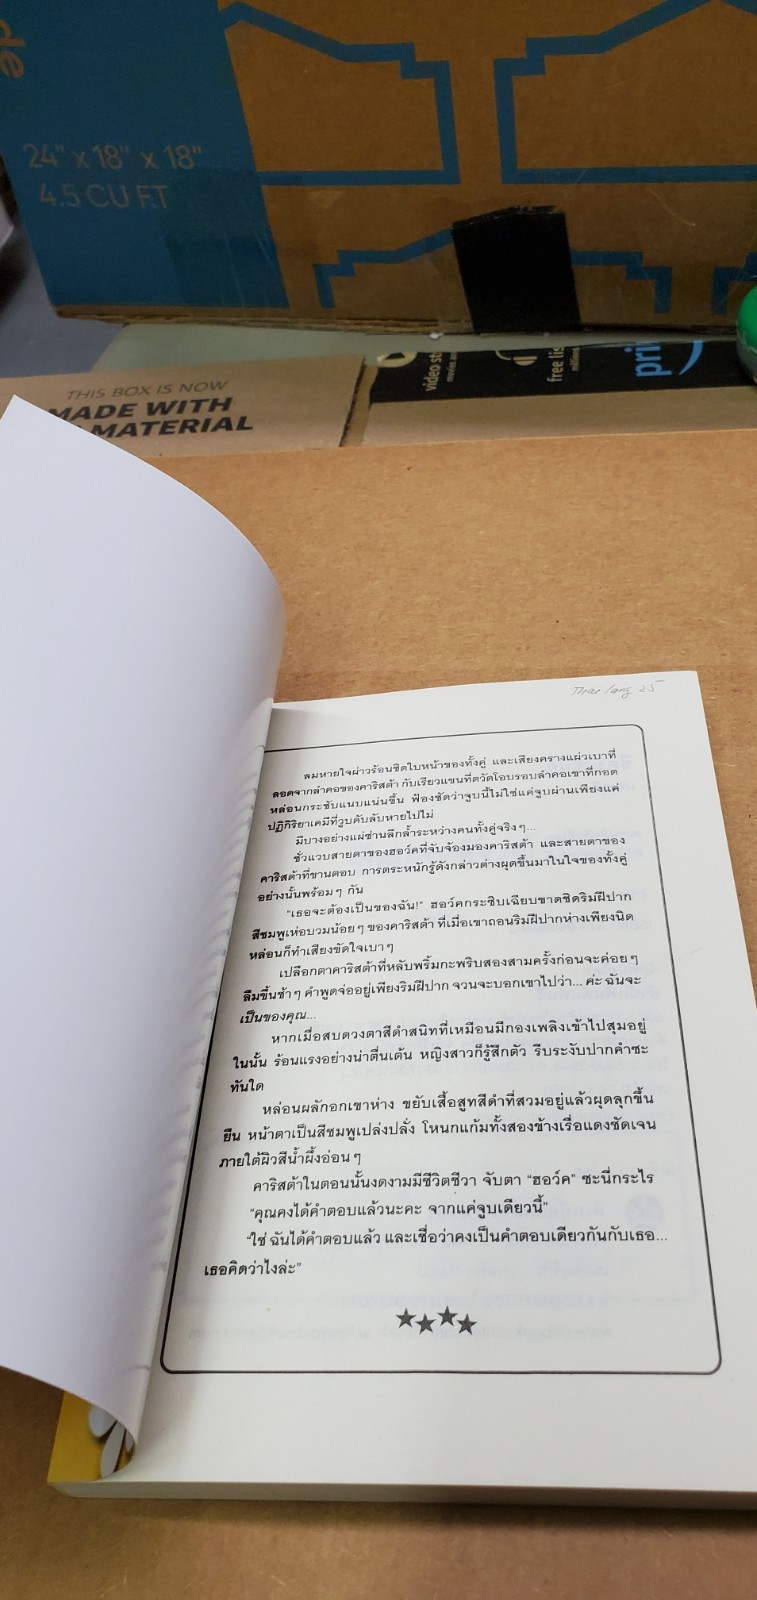 24" x 18" x 18"
4.5 CU FT
THIS BOX IS NOW
MADE WITH
MATERIAL
video st
free lis
pri
Thai lang 25
ลมหายใจผ่าวร้อนชิดใบหน้าของทั้งคู่ และเสียงครางแผ่วเบาที่
ลอดจากลำคอของคาริสต้า กับเรียวแขนที่ตวัดโอบรอบลำคอเขาที่กอด
หล่อนกระชับแนบแน่นขึ้น ฟ้องชัดว่าจูบนี้ไม่ใช่แค่จูบผ่านเพียงแค่
ปฏิกิริยาเคมีที่วูบดับลับหายไปไม่
มีบางอย่างแผ่ซ่านลึกล้ำระหว่างคนทั้งคู่จริงๆ...
ชั่วแวบสายตาของฮอว์คที่จับจ้องมองคาริสต้า และสายตาของ
คาริสต้าที่ขานตอบ การตระหนักรู้ดังกล่าวต่างผุดขึ้นมาในใจของทั้งคู่
อย่างนั้นพร้อมๆ กัน
"เธอจะต้องเป็นของฉัน!" ฮอว์คกระซิบเฉียบขาดชิดริมฝีปาก
สีชมพูเห่อบวมน้อยๆ ของคาริสต้า ที่เมื่อเขาถอนริมฝีปากห่างเพียงนิด
หล่อนก็ทำเสียงขัดใจเบาๆ
เปลือกตาคาริสต้าที่หลับพริ้มกะพริบสองสามครั้งก่อนจะค่อยๆ
ลืมขึ้นช้าๆ คำพูดจ่ออยู่เพียงริมฝีปาก จวนจะบอกเขาไปว่า... ค่ะ ฉันจะ
เป็นของคุณ...
หากเมื่อสบดวงตาสีดำสนิทที่เหมือนมีกองเพลิงเข้าไปสุมอยู่
ในนั้น ร้อนแรงอย่างน่าตื่นเต้น หญิงสาวก็รู้สึกตัว รีบระงับปากคำซะ
ทันใด
หล่อนผลักอกเขาห่าง ขยับเสื้อสูทสีดำที่สวมอยู่แล้วผุดลุกขึ้น
ยืน หน้าตาเป็นสีชมพูเปล่งปลั่ง โหนกแก้มทั้งสองข้างเรื่อแดงชัดเจน
ภายใต้ผิวสีน้ำผึ้งอ่อนๆ
คาริสต้าในตอนนั้นงดงามมีชีวิตชีวา จับตา "ฮอว์ค" ซะนี่กระไร
"คุณคงได้คำตอบแล้วนะคะ จากแค่จูบเดียวนี้"
"ใช่ ฉันได้คำตอบแล้ว และเชื่อว่าคงเป็นคำตอบเดียวกันกับเธอ...
เธอคิดว่าไงล่ะ"